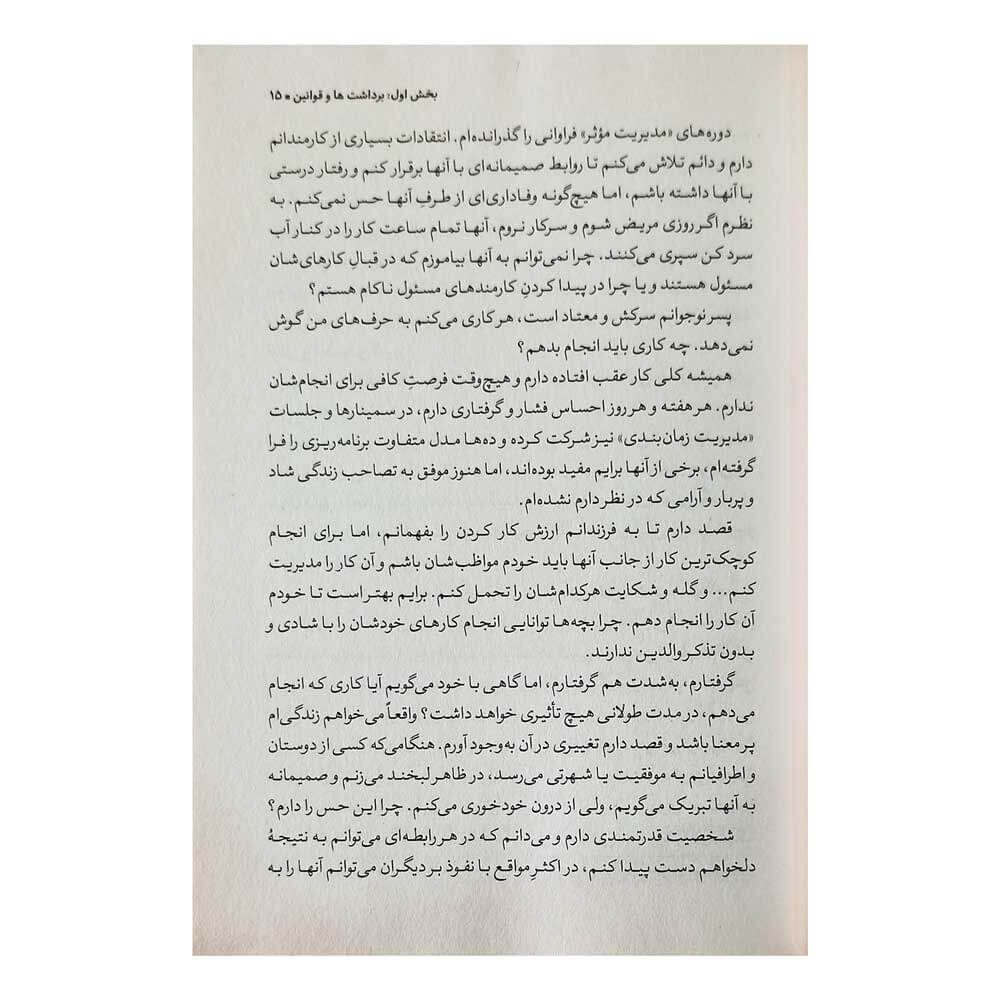 بخش اول؛ برداشت ها و قوانین * ۱۵
دوره‌های «مدیریت مؤثر» فراوانی را گذرانده‌ام. انتقادات بسیاری از کارمندانم
دارم و دائم تلاش می‌کنم تا روابط صمیمانه‌ای با آنها برقرار کنم و رفتار درستی
با آنها داشته باشم، اما هیچ‌گونه وفاداری‌ای از طرفِ آنها حس نمی‌کنم. به
نظرم اگر روزی مریض شوم و سرکار نروم، آنها تمام ساعت کار را در کنار آب
سرد کن سپری می‌کنند. چرا نمی‌توانم به آنها بیاموزم که در قبالِ کارهای‌شان
مسئول هستند و یا چرا در پیدا کردنِ کارمندهای مسئول ناکام هستم؟
پسر نوجوانم سرکش و معتاد است، هر کاری می‌کنم به حرف‌های من گوش
نمی‌دهد. چه کاری باید انجام بدهم؟
همیشه کلی کار عقب افتاده دارم و هیچ‌وقت فرصتِ کافی برای انجام‌شان
ندارم. هر هفته و هر روز احساس فشار و گرفتاری دارم، در سمینارها و جلسات
«مدیریت زمان‌بندی» نیز شرکت کرده و ده‌ها مدل متفاوت برنامه‌ریزی را فرا
گرفته‌ام، برخی از آنها برایم مفید بوده‌اند، اما هنوز موفق به تصاحب زندگی شاد
و پربار و آرامی که در نظر دارم نشده‌ام.
قصد دارم تا به فرزندانم ارزش کار کردن را بفهمانم، اما برای انجام
کوچک‌ترین کار از جانب آنها باید خودم مواظب‌شان باشم و آن کار را مدیریت
کنم... و گله و شکایت هرکدام‌شان را تحمل کنم. برایم بهتر است تا خودم
آن کار را انجام دهم. چرا بچه‌ها توانایی انجام کارهای خودشان را با شادی و
بدون تذکر والدین ندارند.
گرفتارم، به‌شدت هم گرفتارم، اما گاهی با خود می‌گویم آیا کاری که انجام
می‌دهم، در مدت طولانی هیچ تأثیری خواهد داشت؟ واقعاً می‌خواهم زندگی‌ام
پر معنا باشد و قصد دارم تغییری در آن به‌وجود آورم. هنگامی‌که کسی از دوستان
و اطرافیانم به موفقیت یا شهرتی می‌رسد، در ظاهر لبخند می‌زنم و صمیمانه
به آنها تبریک می‌گویم، ولی از درون خودخوری می‌کنم. چرا این حس را دارم؟
شخصیت قدرتمندی دارم و می‌دانم که در هر رابطه‌ای می‌توانم به نتیجهٔ
دلخواهم دست پیدا کنم، در اکثرِ مواقع با نفوذ بر دیگران می‌توانم آنها را به